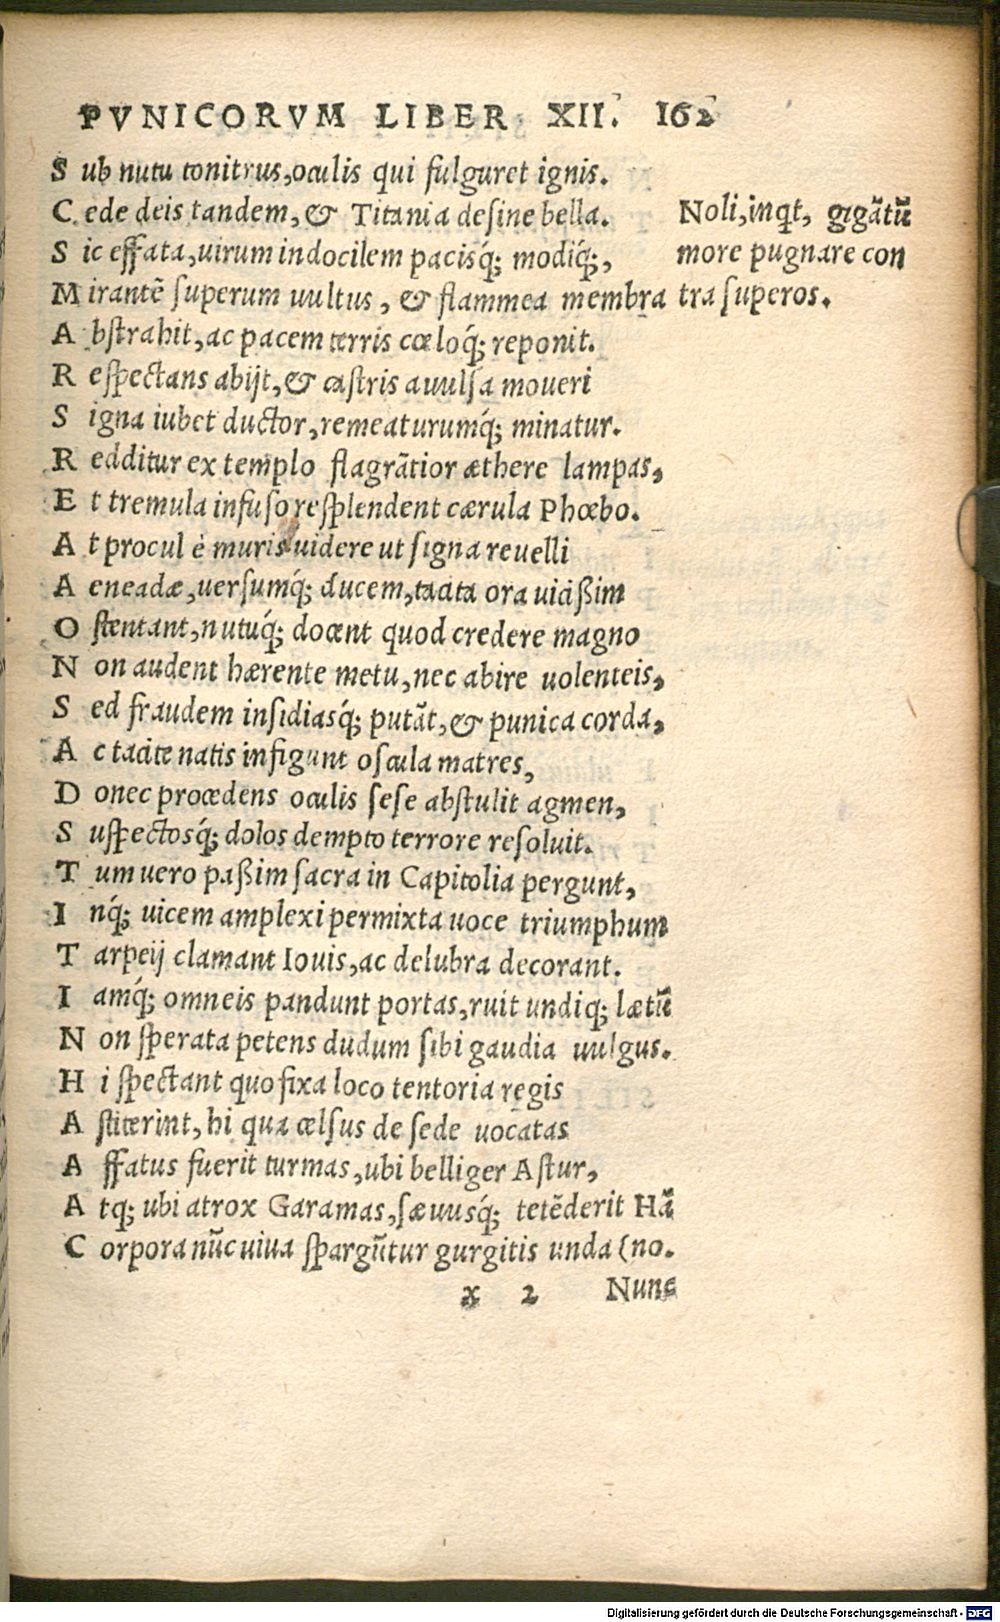 PVNICORVM LIBER XII. 162
Sub nutu tonitrus, oculis qui fulguret ignis.
Cede deis tandem, & Titania desine bella.
Noli, inqt, gigãtũ
Sic effata, uirum indocilem pacisq́; modiq́;,
more pugnare con
Mirantẽ superum uultus, & flammea membra
tra superos.
Abstrahit, ac pacem terris cœloq́; reponit.
Respectans abijt, & castris auulsa moueri
Signa iubet ductor, remeaturumq́; minatur.
Redditur ex templo flagrãtior æthere lampas,
Et tremula infuso resplendent cærula Phœbo.
At procul è muris uidere ut signa reuelli
Aeneadæ, uersumq́; ducem, tacita ora uicißim
Ostentant, nutuq́; docent quod credere magno
Non audent hærente metu, nec abire uolenteis,
Sed fraudem insidiasq́; putãt, & punica corda,
Ac tacite natis infigunt oscula matres,
Donec procedens oculis sese abstulit agmen,
Suspectosq́; dolos dempto terrore resoluit.
Tum uero paßim sacra in Capitolia pergunt,
Inq́; uicem amplexi permixta uoce triumphum
Tarpeij clamant Iouis, ac delubra decorant.
Iamq́; omneis pandunt portas, ruit undiq; lætũ
Non sperata petens dudum sibi gaudia uulgus.
Hi spectant quo fixa loco tentoria regis
Astiterint, hi qua celsus de sede uocatas
Affatus fuerit turmas, ubi belliger Astur,
Atq; ubi atrox Garamas, sæuusq́; tetẽderit Hã
Corpora nũc uiua spargũtur gurgitis unda (no.
x 2 Nunc
Digitalisierung gefördert durch die Deutsche Forschungsgemeinschaft - DFG